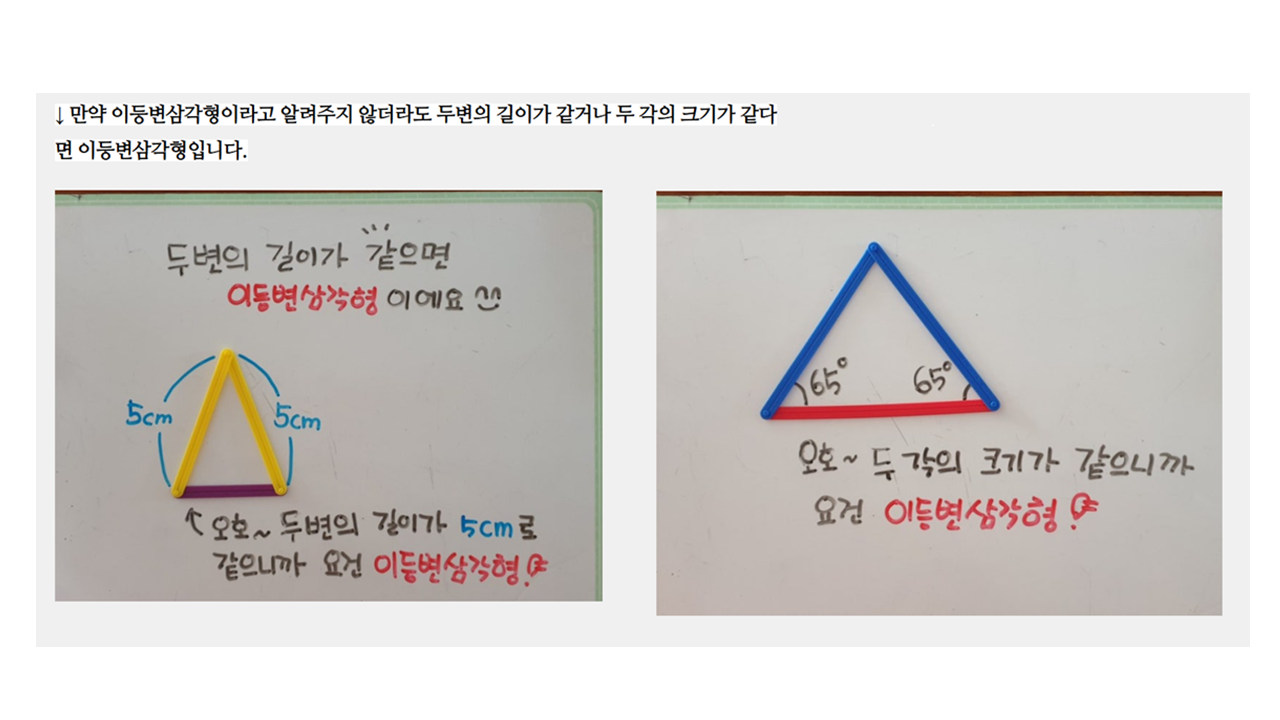 ↓ 만약 이등변삼각형이라고 알려주지 않더라도 두변의 길이가 같거나 두 각의 크기가 같다
면 이등변삼각형입니다.
두변의 길이가 같으면
이등변삼각형이에요 ^^
5cm
5cm
↖ 오호~ 두변의 길이가 5cm로
같으니까 요건 이등변삼각형!
65°
65°
오호~ 두 각의 크기가 같으니까
요건 이등변삼각형!